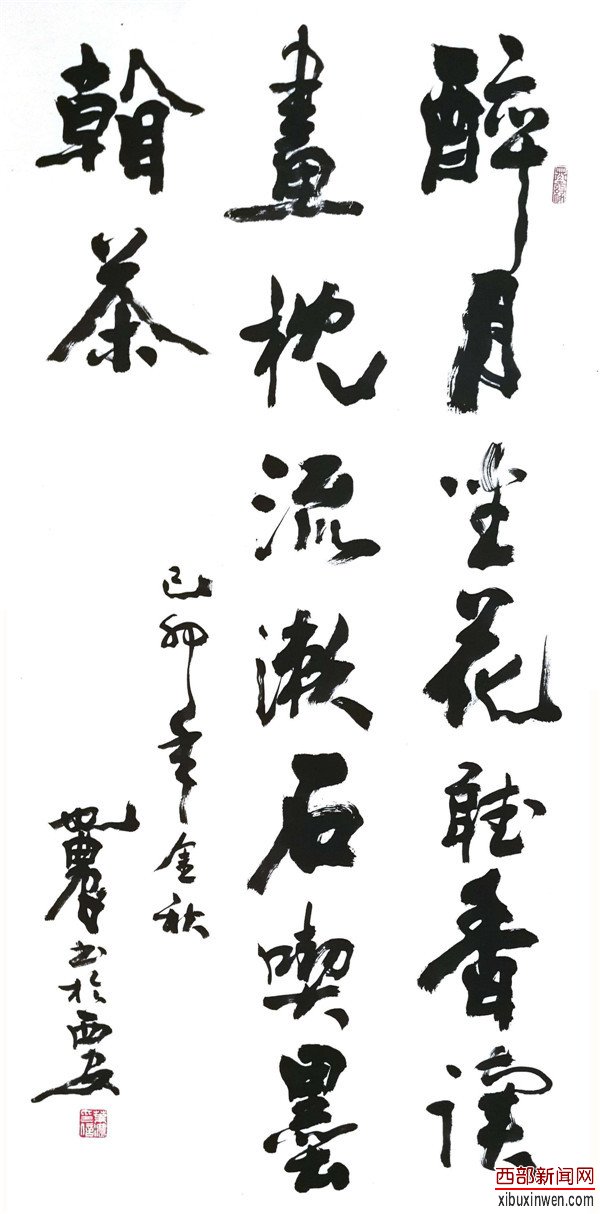 醉月坐花聽香读
畫枕流漱石喫墨
翰茶
己卯年金秋
農书於西安
西部新闻网
xibuxinwen.com